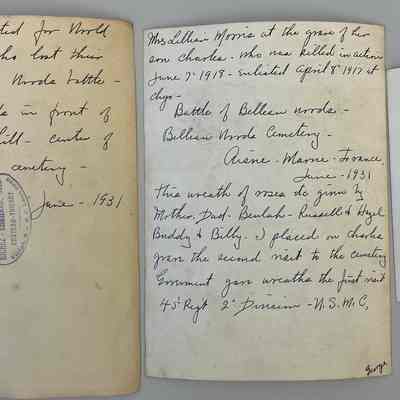 ted for World
who lost their
Woods battle -
in front of
Hill - center of
cemetery -
June - 1931
Mrs Lillian Morris at the grave of her
son Charles - who was killed in action
June 7" 1918 - Enlisted April 8" 1917 at
Chgo -
Battle of Belleau Woods -
Belleau Woods Cemetery -
Aisne - Marne - France
June - 1931
This wreath of roses is given by
Mother, Dad - Beulah - Russell & Hazel
Buddy & Billy. I placed on Charles
grave the second visit to the cemetery
Government gave wreaths the first visit
Regt 2" Division - U.S.M.C.
George